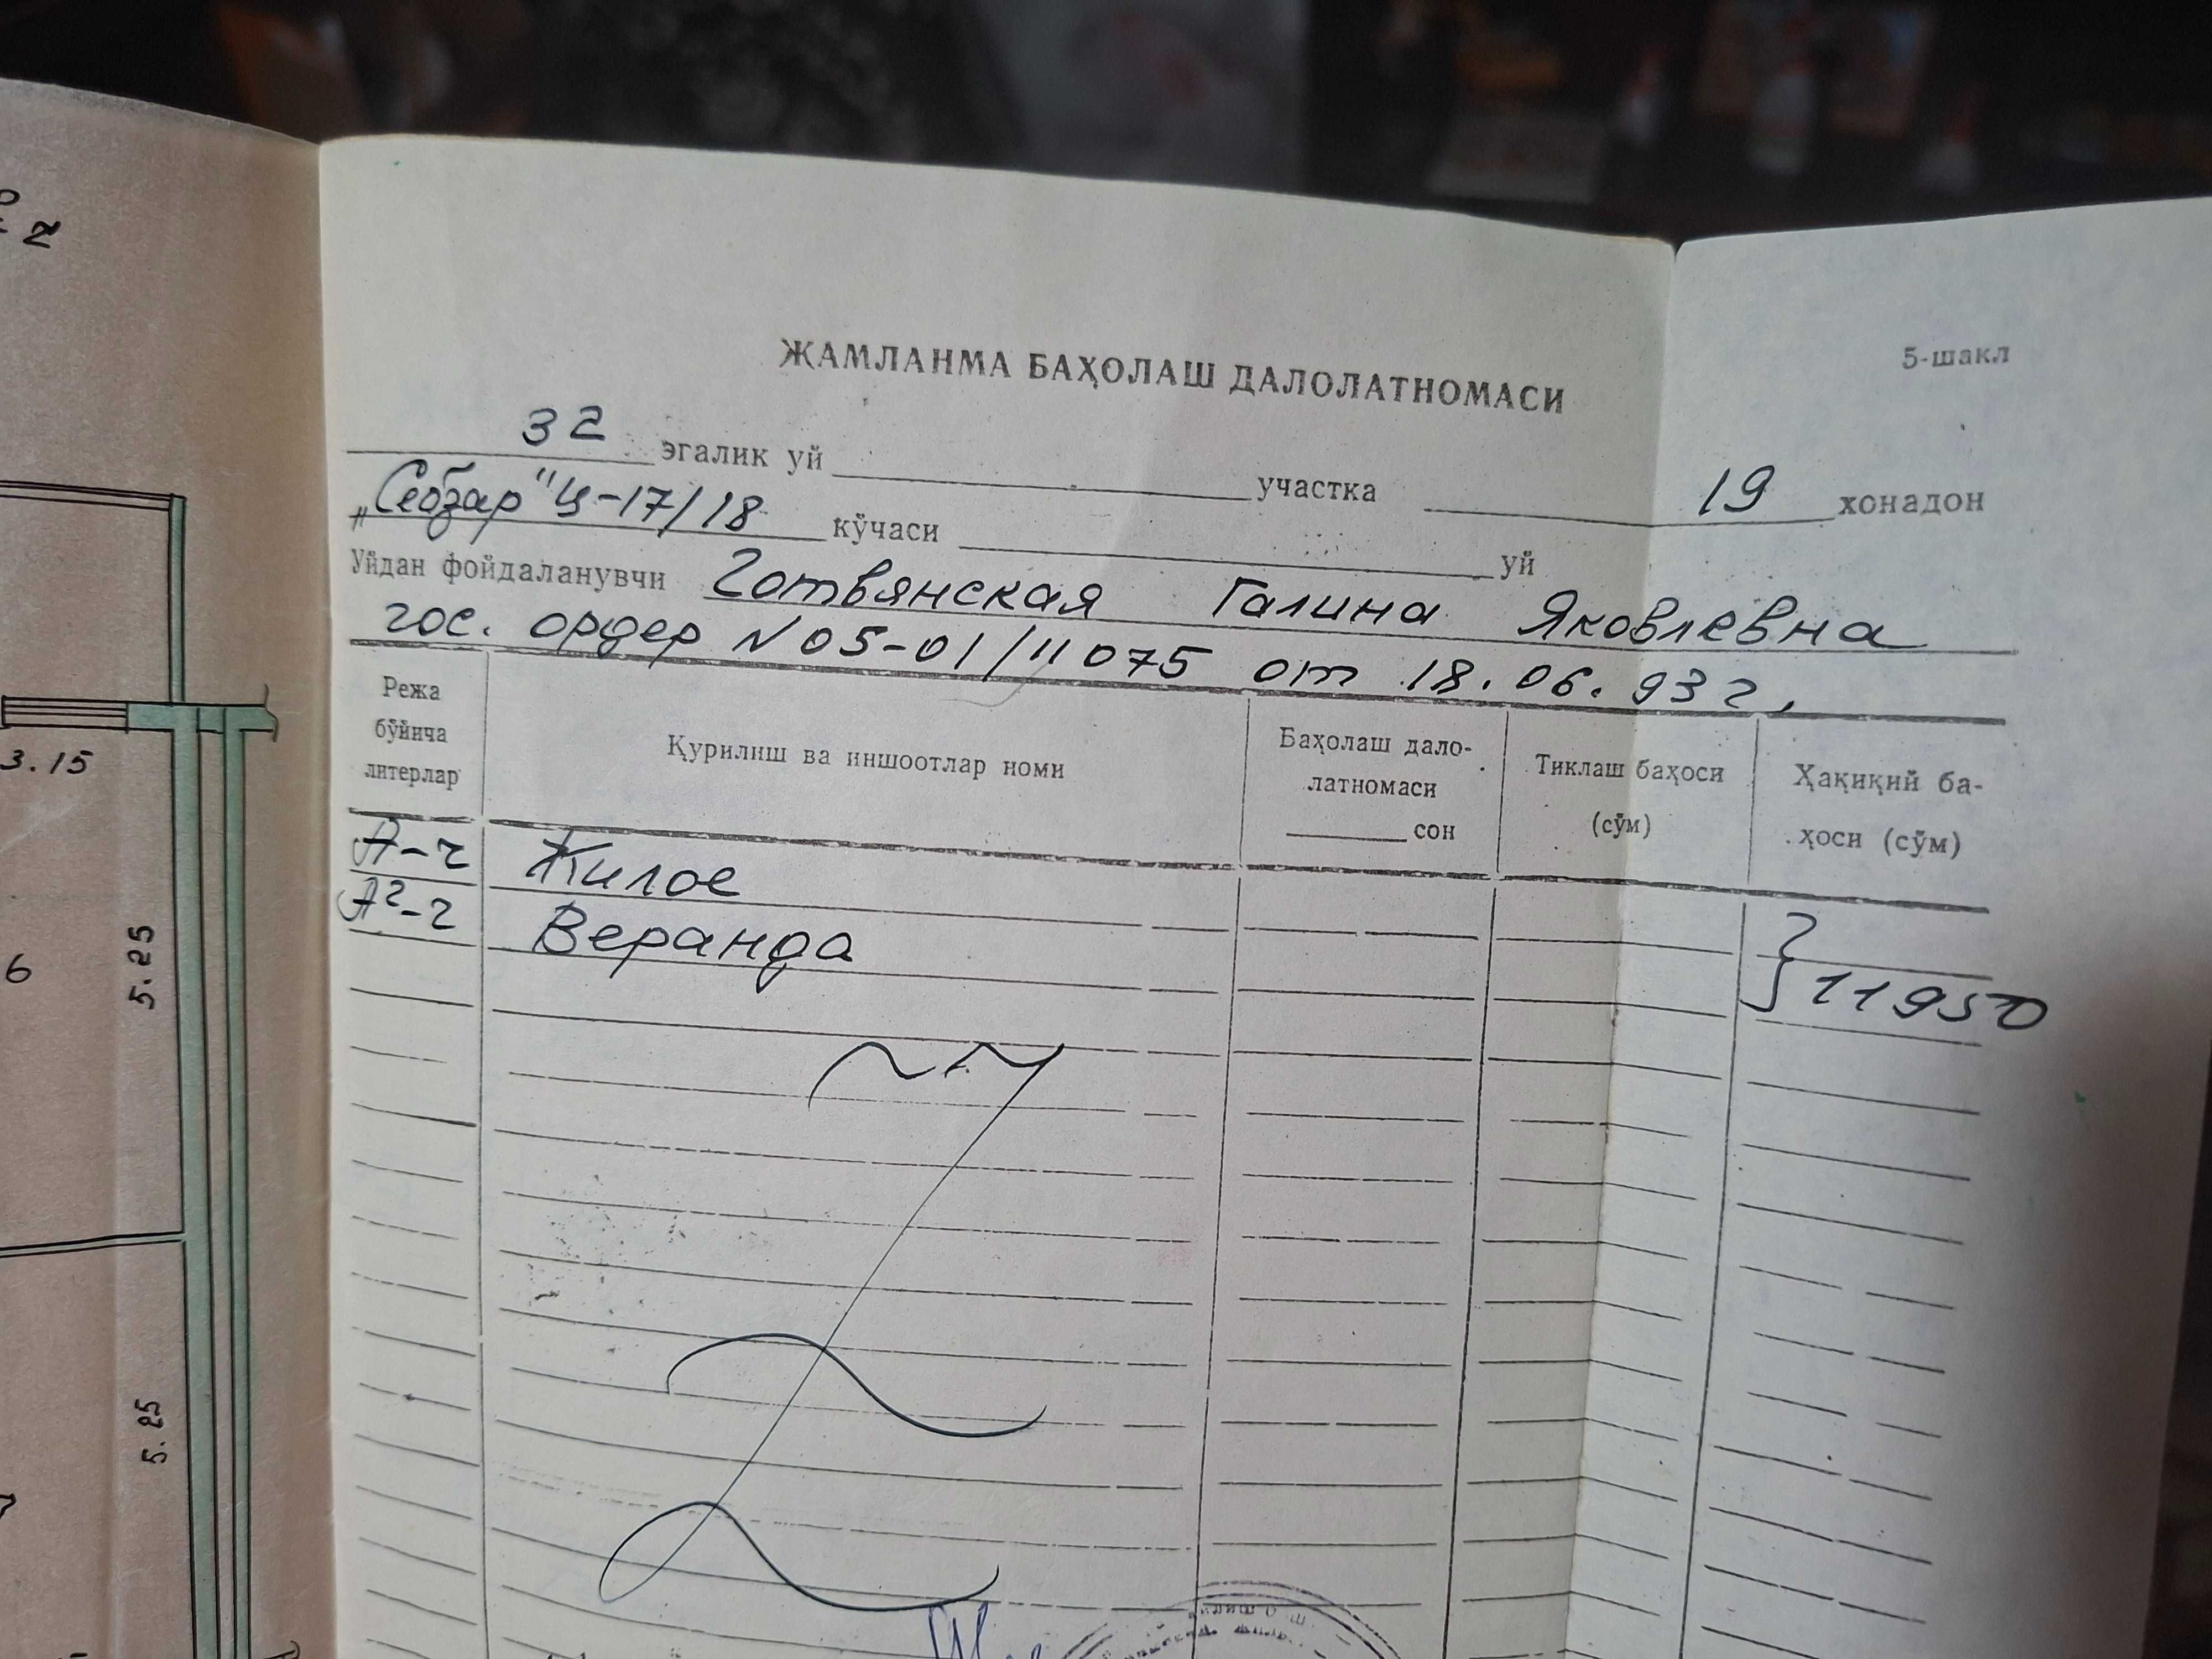 5-шакл
ЖАМЛАНМА БАҲОЛАШ ДАЛОЛАТНОМАСИ
32 эгалик уй участка 19 хонадон
„Себзар" Ц-17/18 кўчаси уй
Уйдан фойдаланувчи Готвянская Галина Яковлевна
гос. ордер N 05-01/11075 от 18.06.93г.
Режа бўйича литерлар
Қурилиш ва иншоотлар номи
Баҳолаш дало-
латномаси
сон
Тиклаш баҳоси
(сўм)
Ҳақиқий ба-
ҳоси (сўм)
А-2 Жилое
А²-2 Веранда
11950
3.15
5.25
6
5.25
2